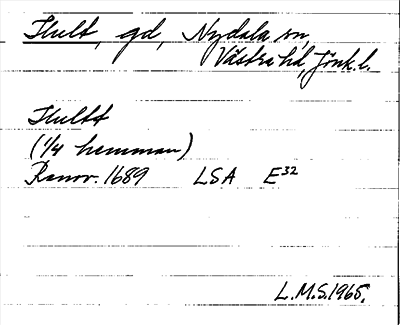 Hult, gd, Nydala sn,
Västra hd, Jönk.l.
Hultt
(1/4 hemman)
Ranov. 1689 LSA E32
L.M.S. 1965.